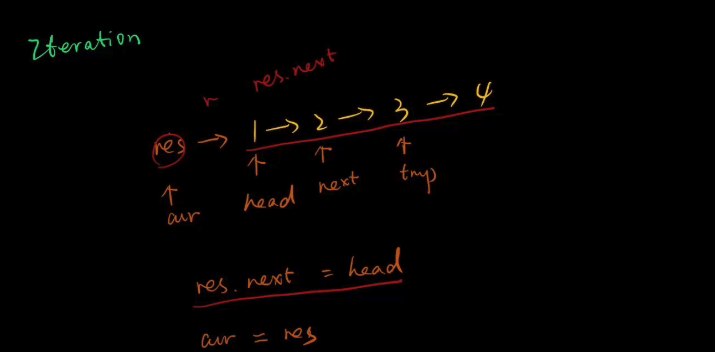 Iteration
r res.next
res → 1 → 2 → 3 → 4
↑ ↑ ↑ ↑
cur head next tmp
res.next = head
cur = res